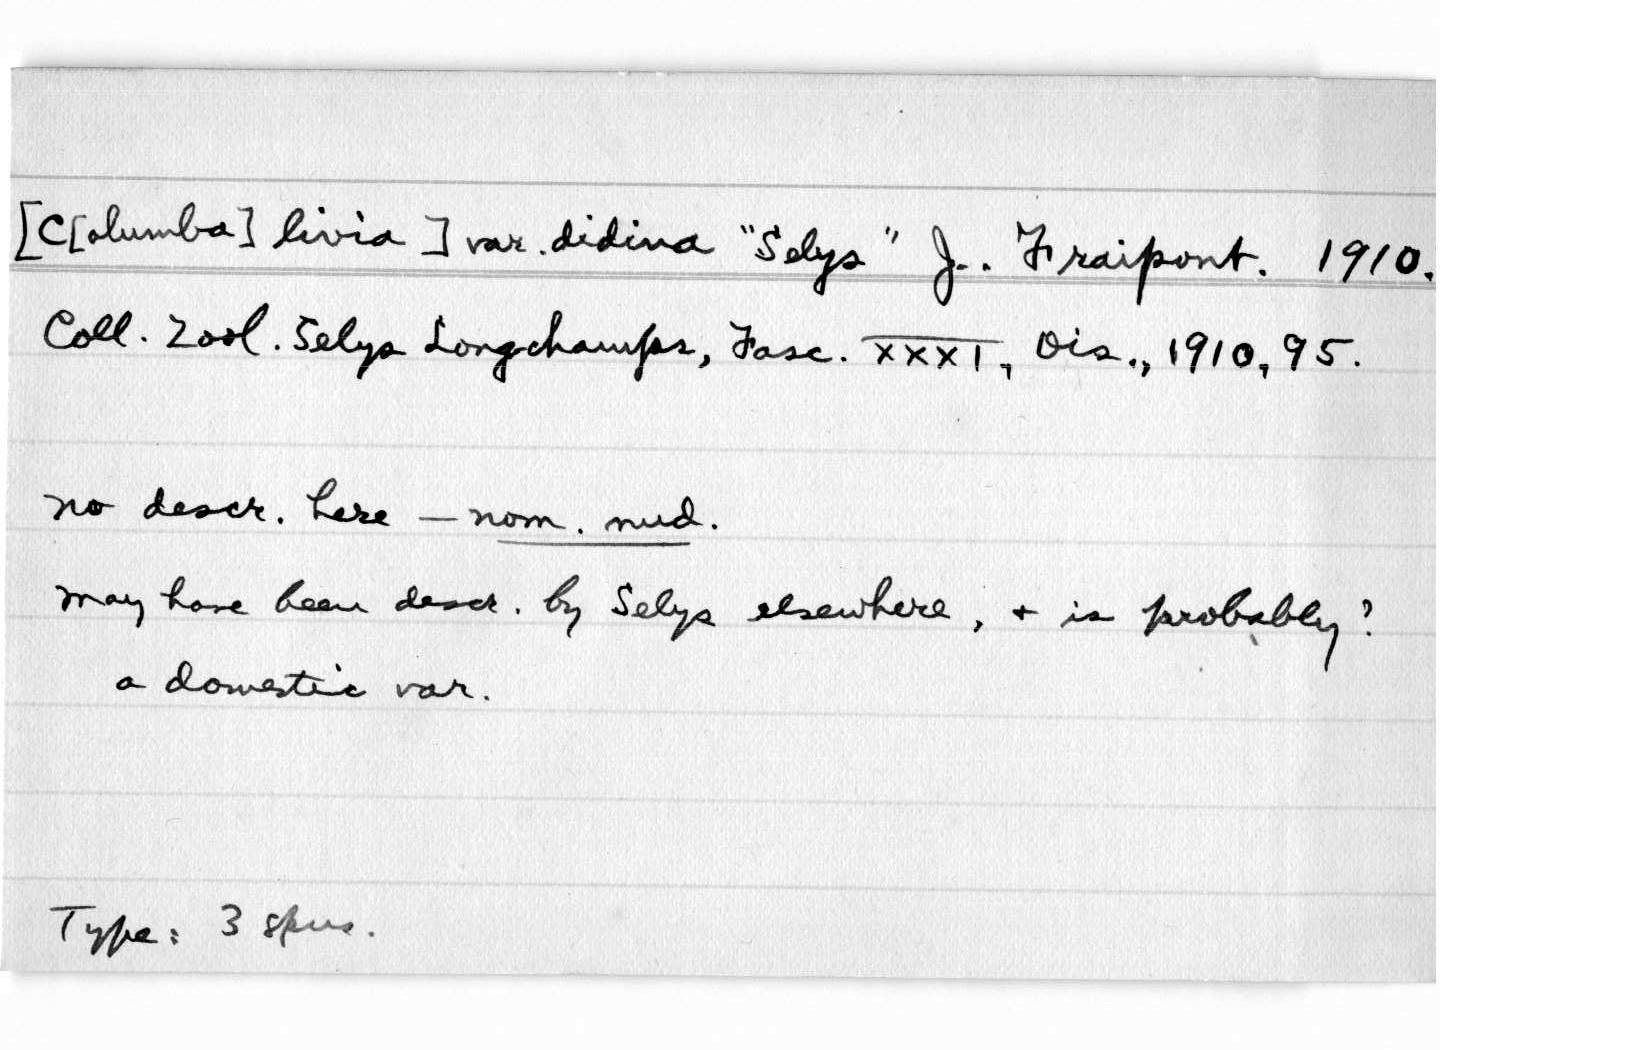 [C[olumba] livia] var. didina "Selys" J. Fraipont. 1910.
Coll. Zool. Selys Longchamps, Fasc. XXXI, Ois., 1910, 95.
no descr. here – nom. nud.
may have been descr. by Selys elsewhere, + is probably?
a domestic var.
Type: 3 spns.